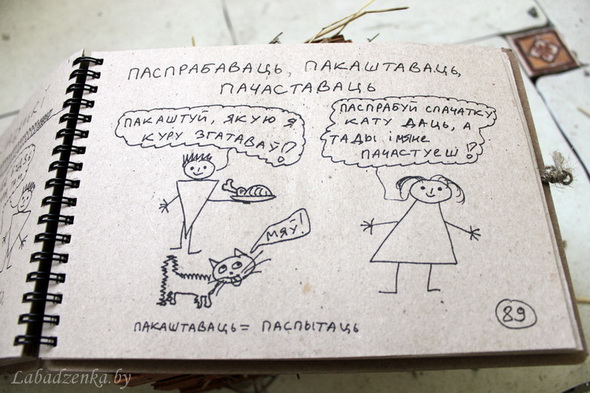 ПАСПРАБАВАЦЬ, ПАКАШТАВАЦЬ,
ПАЧАСТАВАЦЬ
ПАКАШТУЙ, ЯКУЮ Я
КУРУ ЗГАТАВАЎ!
ПАСПРАБУЙ СПАЧАТКУ
КАТУ ДАЦЬ, А
ТАДЫ І МЯНЕ
ПАЧАСТУЕШ!
МЯЎ!
ПАКАШТАВАЦЬ = ПАСПЫТАЦЬ
89
Labadzenka.by